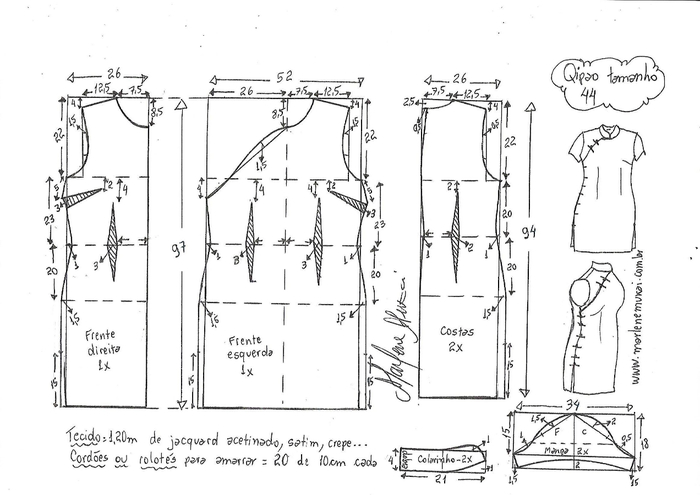 26
52
26
Qipao tamanho
44
12,5
7,5
26
7,5
12,5
12,5
7,5
4
8,5
8,5
4
2,5
4
1,5
1,5
0,5
1,5
22
1,5
22
22
97
94
2
4
4
4
4
2
4
5
3
3
23
23
20
3
1
3
3
1
1
2
1
20
20
20
1,5
1,5
1,5
1,5
Frente
direita
1x
Frente
esquerda
1x
Costas
2x
15
15
15
Marlene Mukai
www.marlenemukai.com.br
34
1,5
2
F
C
15
1
0,5
18
Manga 2x
2
15
15
Tecido: 1,20m de jacquard acetinado, satim, crepe...
Cordões ou rolotês para amarrar = 20 de 10cm cada
4
dobra
Colarinho-2x
1
1
21